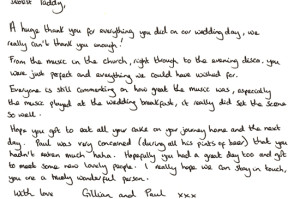 Dearest Paddy,
A huge thank you for everything you did on our wedding day, we
really can't thank you enough!
From the music in the church, right through to the evening disco, you
were just perfect and everything we could have wished for.
Everyone is still commenting on how great the music was, especially
the music played at the wedding breakfast, it really did set the scene
so well.
Hope you got to eat all your cake on your journey home and the next
day. Paul was very concerned (during all his pints of beer) that you
hadn't eaten much haha. Hopefully you had a great day too and got
to meet some new lovely people. I really hope we can stay in touch,
you are a truly wonderful person.
With love Gillian and Paul xxx